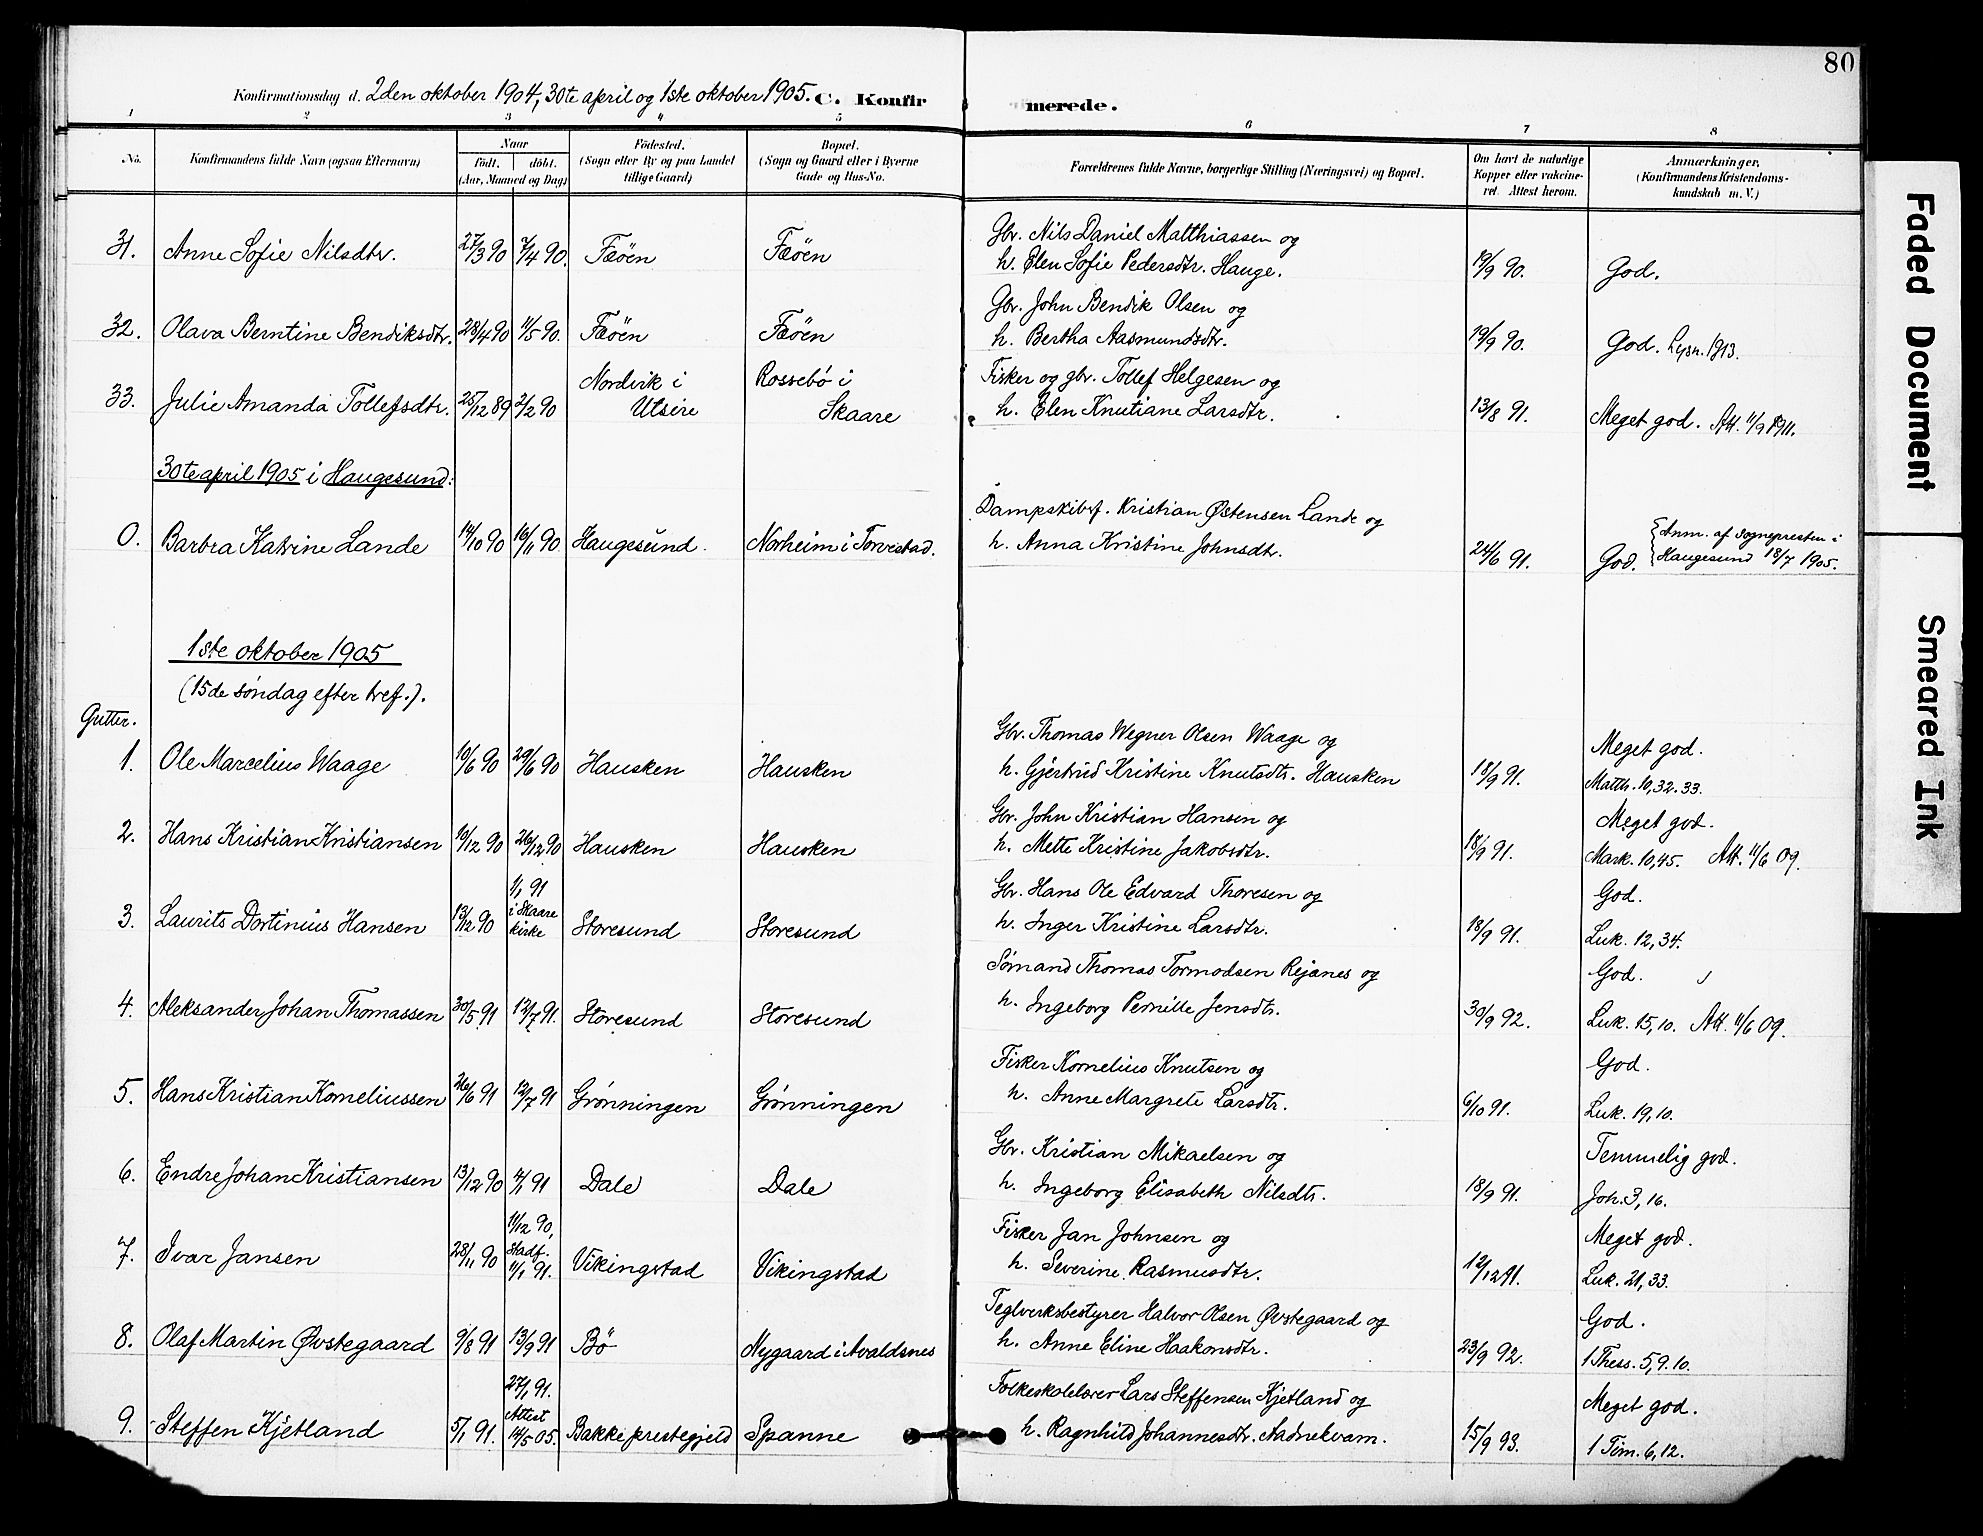 80
Konfirmationsdag d. 2den oktober 1904, 30te april og 1ste oktober 1905. C. Konfirmerede.
1 2 3 4 5 6 7 8
No.
Konfirmandens fulde Navn (ogsaa Efternavn)
Naar
født. døbt.
(Aar, Maaned og Dag)
Fødested.
(Sogn eller By og paa Landet
tillige Gaard)
Bopæl.
(Sogn og Gaard eller i Byerne
Gade og Hus-No.
Forældrenes fulde Navne, borgerlige Stilling (Næringsvei) og Bopæl.
Om havt de naturlige
Kopper eller vakcine-
ret. Attest herom.
Anmærkninger.
(Konfirmandens Kristendoms-
kundskab m. V.)
Gbr. Nils Daniel Matthiassen og
31. Anne Sofie Nilsdtr. 27/3 90 7/4 90. Føöen Føöen h. Elen Sofie Pedersdtr. Hauge. 19/9 90. God.
Gbr. John Bendik Olsen og
32. Olava Berntine Bendiksdtr. 28/4 90 11/5 90. Føöen Føöen h. Bertha Aasmundsdtr. 19/9 90. God. Lysn. 1913.
Nordvik i Rossebö i Fisker og gbr. Tollef Helgesen og
33. Julie Amanda Tollefsdtr. 25/12 89 2/2 90 Utsire Skaare h. Elen Knutiane Larsdtr. 13/8 91. Meget god. Att. 11/9 1911.
30te april 1905 i Haugesund:
Dampskibsf. Kristian Østensen Lande og
0. Barbra Katrine Lande 14/10 90 16/11 90. Haugesund. Norheim i Torvestad. h. Anna Kristine Johnsdtr. 24/6 91. God. {Anm. af sognepresten i
Haugesund 18/7 1905.
1ste oktober 1905
(15de søndag efter tref.).
Gutter.
Gbr. Thomas Wegner Olsen Waage og Meget god.
1. Ole Marcelius Waage 10/6 90 29/6 90 Hausken Hausken h. Gjertrud Kristine Knutsdtr. Hausken 18/9 91. Matth. 10, 32. 33.
Gbr. John Kristian Hansen og Meget god.
2. Hans Kristian Kristiansen 10/12 90 26/12 90 Hausken Hausken h. Mette Kristine Jakobsdtr. 18/9 91. Mark. 10, 45. Att. 11/6 09.
1/1 91 Gbr. Hans Ole Edvard Thoresen og God.
3. Laurits Dortinius Hansen 13/12 90 i Skaare kirke Storesund Storesund h. Inger Kristine Larsdtr. 18/9 91. Luk. 12, 34.
Sømand Thomas Tormodsen Rejanes og God.
4. Aleksander Johan Thomassen 30/5 91 12/7 91. Storesund Storesund h. Ingeborg Pernille Jensdtr. 30/9 92. Luk. 15, 10. Att. 11/6 09.
Fisker Kornelius Knutsen og God.
5. Hans Kristian Korneliussen 26/6 91 12/7 91 Grønningen Grønningen h. Anne Margrete Larsdtr. 6/10 91. Luk. 19, 10.
Gbr. Kristian Mikaelsen og Temmelig god.
6. Endre Johan Kristiansen 13/12 90 11/1 91 Dale Dale h. Ingeborg Elisabeth Nilsdtr. 18/9 91. Joh. 3, 16.
11/12 90, Fisker Jan Johnsen og Meget god.
7. Ivar Jansen 28/11 90 Stadf. 11/1 91. Vikingstad Vikingstad h. Severine Rasmusdtr. 12/12 91. Luk. 21, 33.
Teglverksbestyrer Halvor Olsen Øvstegaard og God.
8. Olaf Martin Øvstegaard 9/8 91 13/9 91 Bö Nygaard i Avaldsnes h. Anne Eline Haakonsdtr. 23/9 92. 1 Thess. 5, 9. 10.
27/1 91. Folkeskolelærer Lars Steffensen Kjetland og Meget god.
9. Steffen Kjetland 5/1 91. Attest 14/5 05. Bakke prestegjeld Spanne h. Ragnhild Johannesdtr. Aadnekvam. 15/9 93. 1 Tim. 6, 12.
Faded Document
Smeared Ink